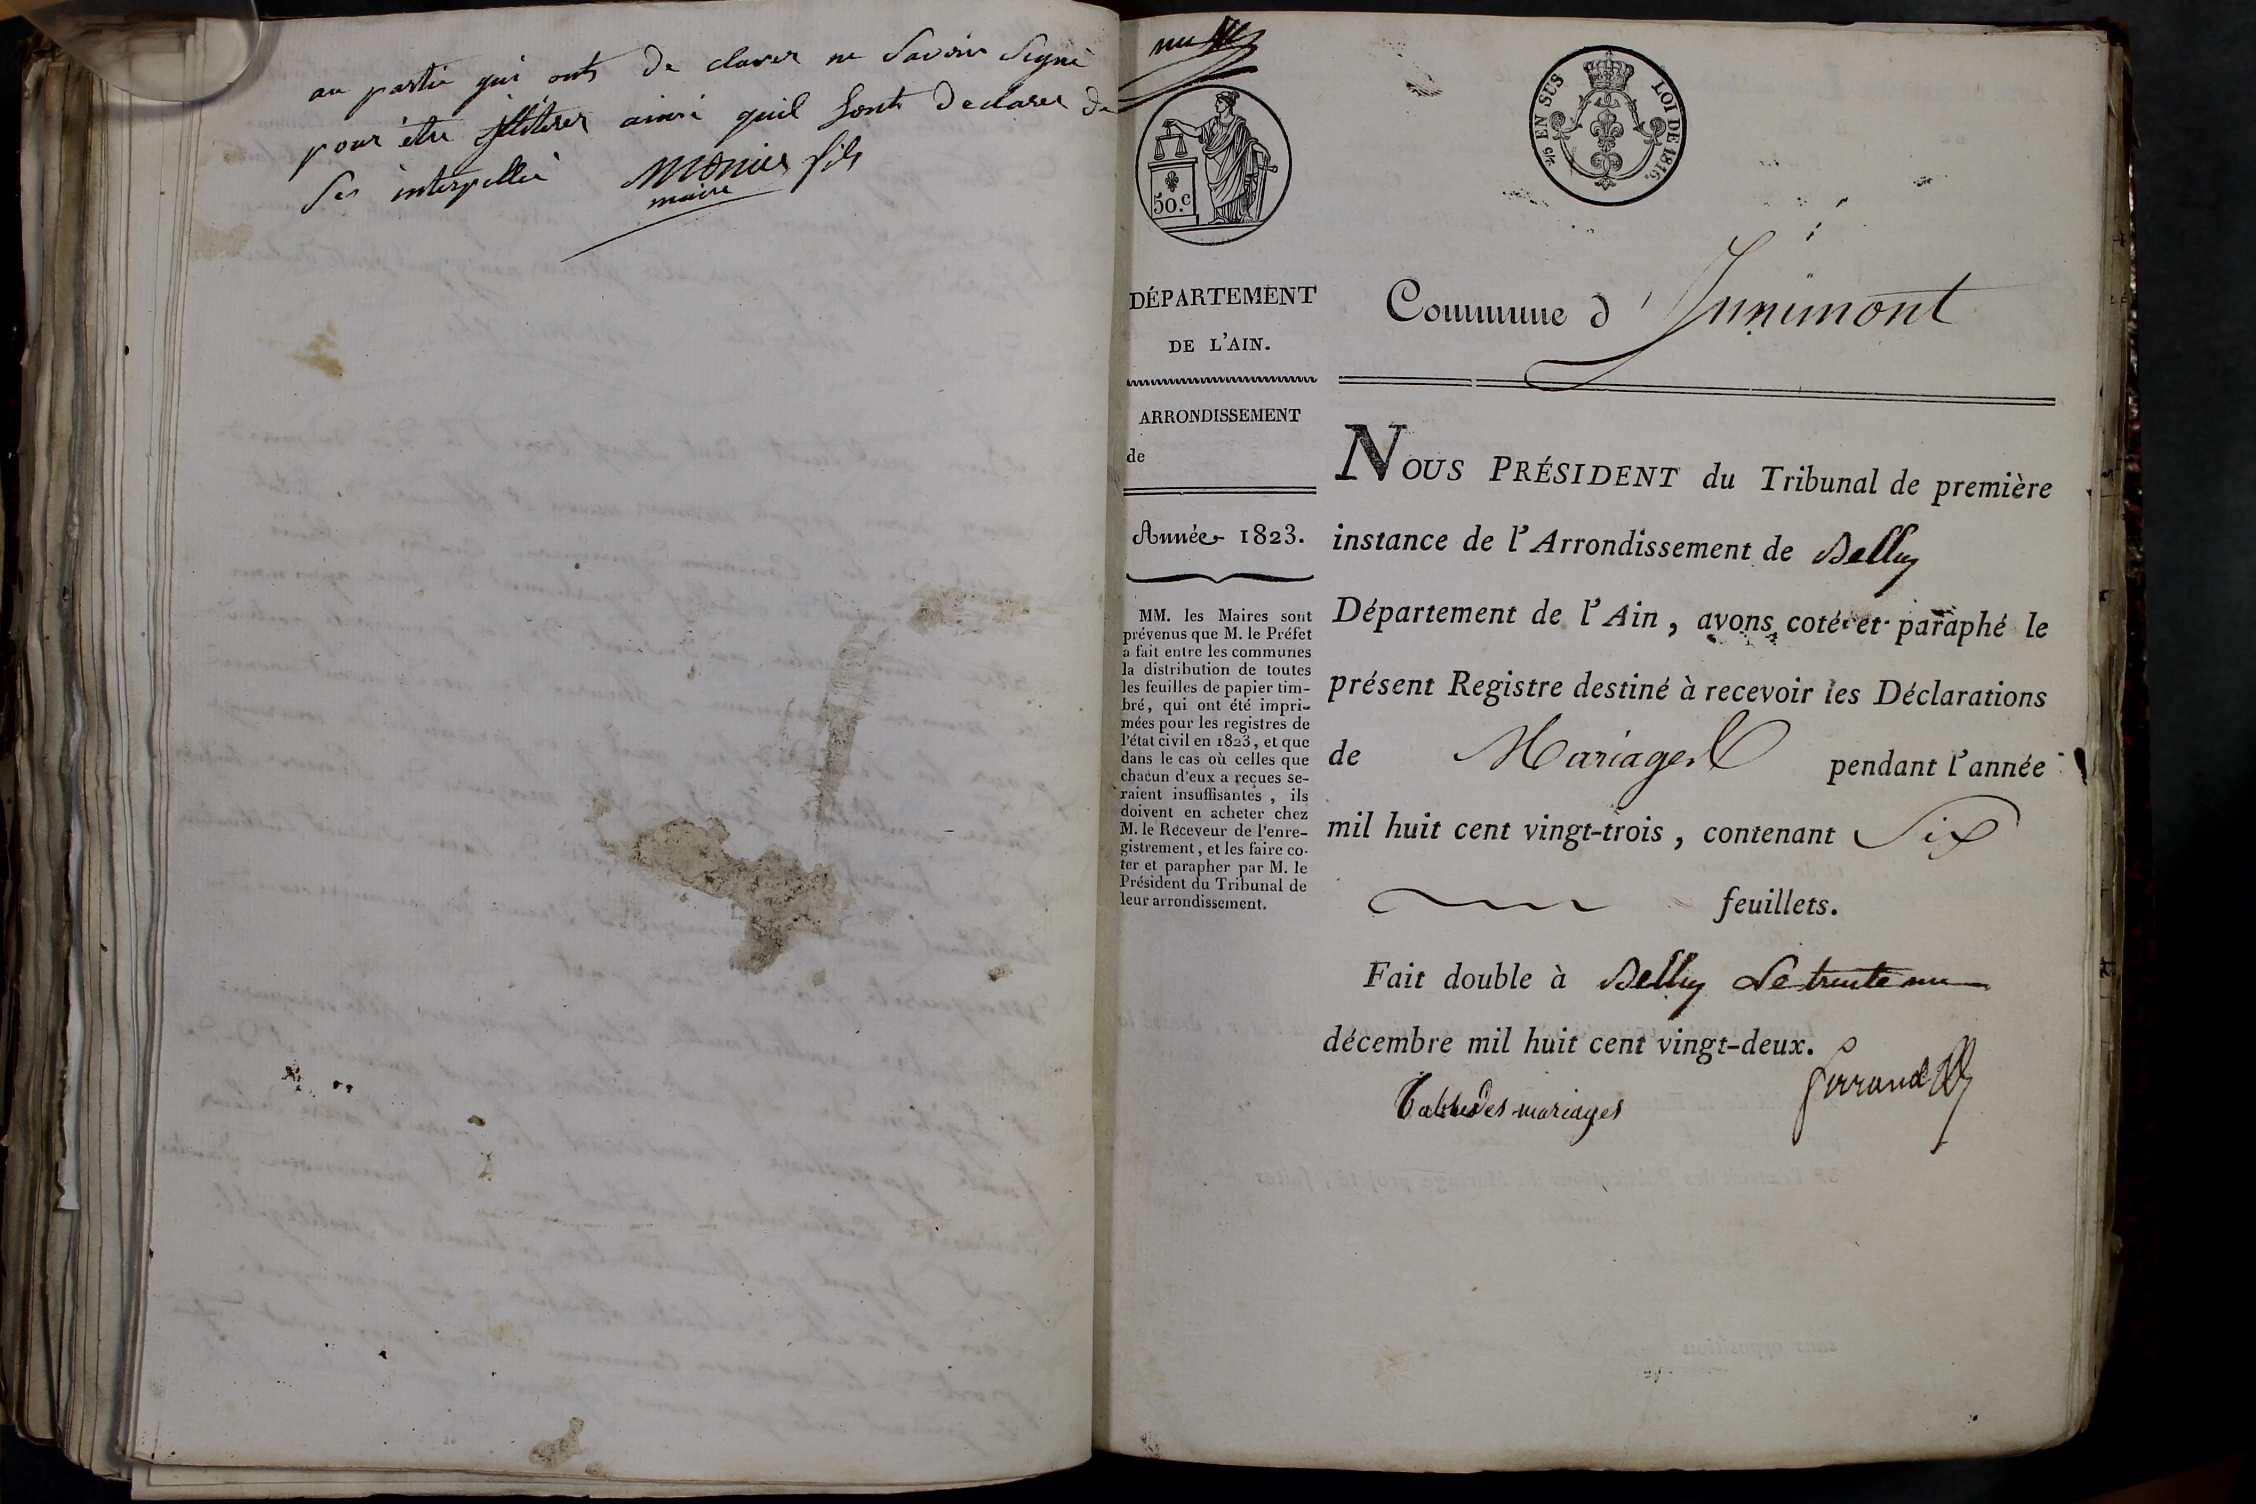 au partie qui onts de clarer ne Savoir Signé
pour être illiterer ainsi quil Sonts Declarer de
Ses interpellé Monier fils
maire
50.c
c/e EN SUS LOI DE 1816.
DÉPARTEMENT
DE L'AIN.
ARRONDISSEMENT
de
Année 1823.
MM. les Maires sont
prévenus que M. le Préfet
a fait entre les communes
la distribution de toutes
les feuilles de papier tim-
bré, qui ont été impri-
mées pour les registres de
l'état civil en 1823, et que
dans le cas où celles que
chacun d'eux a reçues se-
raient insuffisantes, ils
doivent en acheter chez
M. le Receveur de l'enre-
gistrement, et les faire co-
ter et parapher par M. le
Président du Tribunal de
leur arrondissement.
Commune d'Innimont
NOUS PRÉSIDENT du Tribunal de première
instance de l'Arrondissement de Belley
Département de l'Ain, avons coté et paraphé le
présent Registre destiné à recevoir les Déclarations
de Mariages pendant l'année
mil huit cent vingt-trois, contenant Six
feuillets.
Fait double à Belley Le trente un
décembre mil huit cent vingt-deux.
Table des mariages